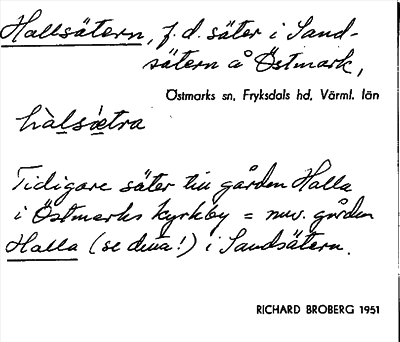 Hallsätern, f.d. säter i Sand-
sätern å Östmark,
Östmarks sn, Fryksdals hd, Värml. län
hàlsǽtra
Tidigare säter till gården Halla
i Östmarks kyrkby = nuv. gården
Halla (se detta!) i Sandsätern.
RICHARD BROBERG 1951